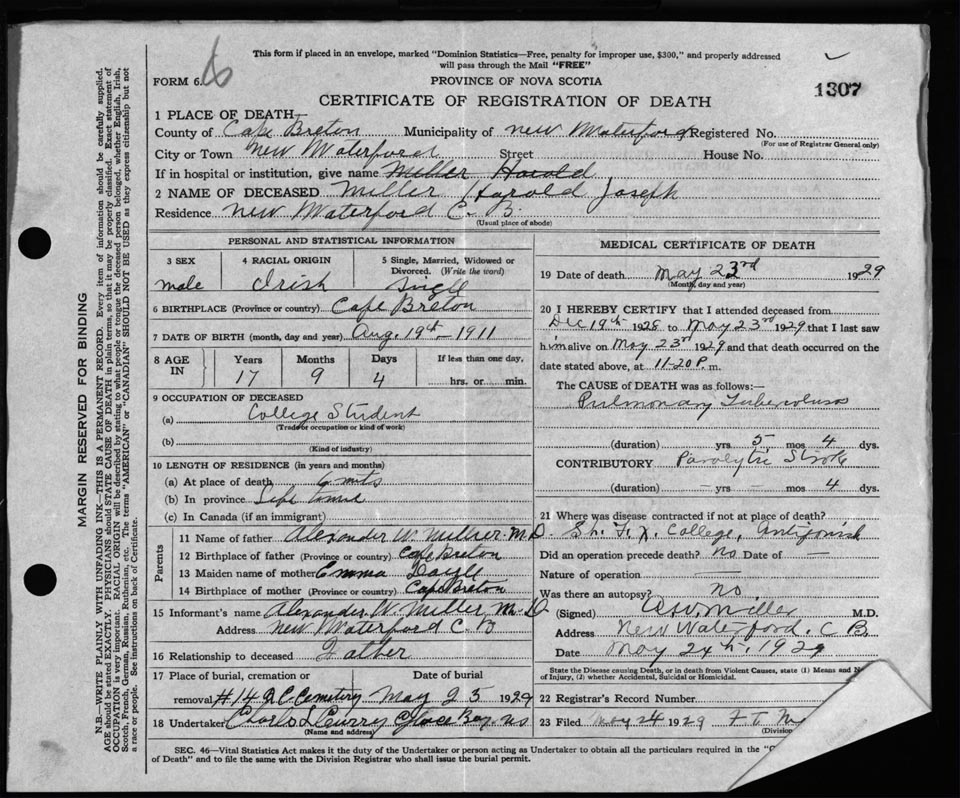 This form if placed in an envelope, marked "Dominion Statistics—Free, penalty for improper use, $300," and properly addressed
will pass through the Mail "FREE"
FORM 6. 6
PROVINCE OF NOVA SCOTIA
1307
CERTIFICATE OF REGISTRATION OF DEATH
1 PLACE OF DEATH—
County of Cape Breton Municipality of New Waterford Registered No.
(For use of Registrar General only)
City or Town New Waterford Street House No.
If in hospital or institution, give name Miller Harold
2 NAME OF DECEASED Miller Harold Joseph
Residence New Waterford C. B.
(Usual place of abode)
PERSONAL AND STATISTICAL INFORMATION
3 SEX 4 RACIAL ORIGIN 5 Single, Married, Widowed or
Divorced. (Write the word)
male Irish Single
6 BIRTHPLACE (Province or country) Cape Breton
7 DATE OF BIRTH (month, day and year) Aug. 19th - 1911
8 AGE IN Years Months Days If less than one day,
17 9 4 hrs. or min.
9 OCCUPATION OF DECEASED
(a) College Student
(Trade or occupation or kind of work)
(b)
(Kind of industry)
10 LENGTH OF RESIDENCE (in years and months)
(a) At place of death 6 mts
(b) In province Life time
(c) In Canada (if an immigrant)
Parents
11 Name of father Alexander W. Miller. M.D.
12 Birthplace of father (Province or country) Cape Breton
13 Maiden name of mother Emma
14 Birthplace of mother (Province or country) Cape Breton
15 Informant's name Alexander W. Miller M.D
Address New Waterford C. B
16 Relationship to deceased Father
17 Place of burial, cremation or Date of burial
removal #14 R.C. Cemetery May 25 1929
18 Undertaker Charles L Curry Glace Bay. N.S
(Name and address)
MEDICAL CERTIFICATE OF DEATH
19 Date of death May 23rd 1929
(Month, day and year)
20 I HEREBY CERTIFY that I attended deceased from
Dec 19th 1928 to May 23rd 1929 that I last saw
him alive on May 23rd 1929 and that death occurred on the
date stated above, at 11-20 P. m.
The CAUSE OF DEATH was as follows:—
Pulmonary Tuberculosis
(duration) yrs 5 mos 4 dys.
CONTRIBUTORY Paralytic Stroke
(duration) — yrs — mos 4 dys.
21 Where was disease contracted if not at place of death?
St. F. X. College, Antigonish
Did an operation precede death? no Date of —
Nature of operation —
Was there an autopsy? no
(Signed) A W Miller M.D.
Address New Waterford. C B.
Date May 24th, 1929
State the Disease causing Death, or in death from Violent Causes, state (1) Means and
of Injury, (2) whether Accidental, Suicidal or Homicidal.
22 Registrar's Record Number
23 Filed May 24 1929 F. T.
(Division
SEC. 46—Vital Statistics Act makes it the duty of the Undertaker or person acting as Undertaker to obtain all the particulars required in the "C
of Death" and to file the same with the Division Registrar who shall issue the burial permit.
MARGIN RESERVED FOR BINDING
N.B.—WRITE PLAINLY WITH UNFADING INK—THIS IS A PERMANENT RECORD. Every item of information should be carefully supplied.
AGE should be stated EXACTLY. PHYSICIANS should STATE CAUSE OF DEATH in plain terms, so that it may be properly classified. Exact statement of
OCCUPATION is very important. RACIAL ORIGIN will be described by stating to what people or tongue the deceased person belonged, whether English, Irish,
Scotch, French, German, Russian, Ruthenian, etc. The terms "AMERICAN" or "CANADIAN" SHOULD NOT BE USED as they express citizenship but not
a race or people. See instructions on back of Certificate.